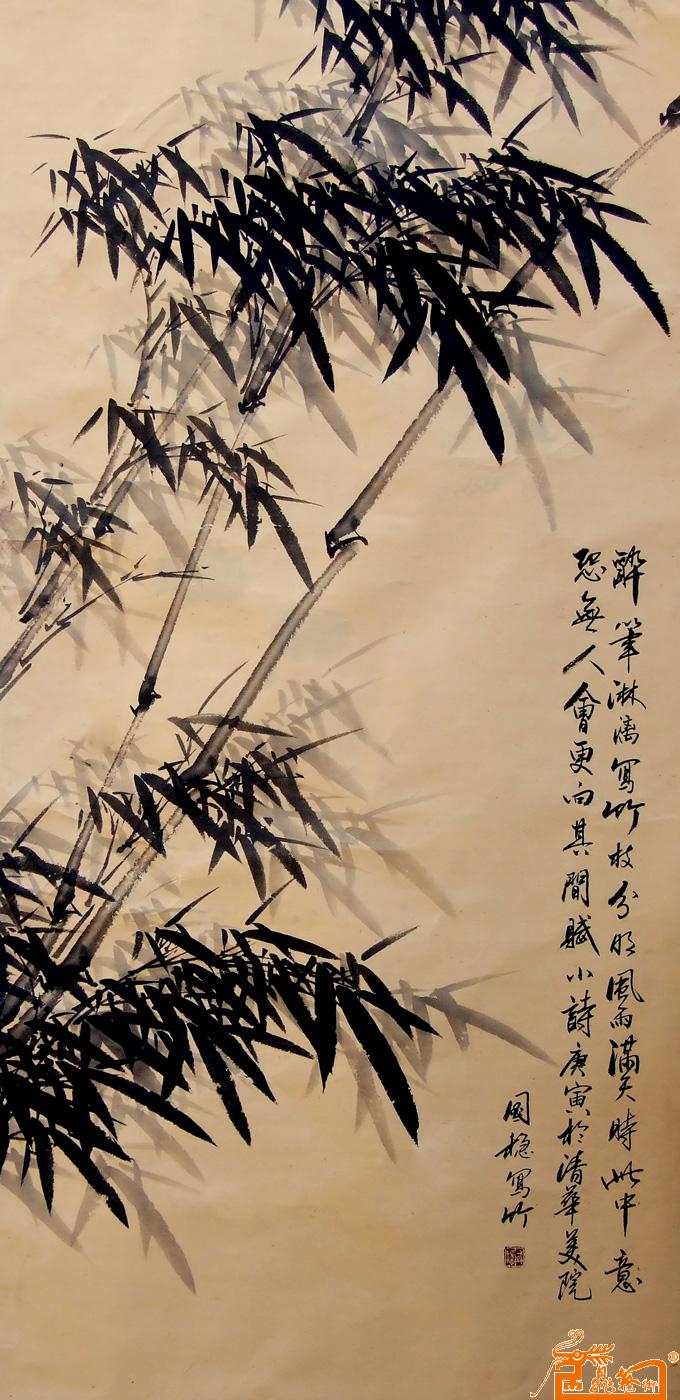 醉筆淋漓寫竹枝分明風雨滿天時此中意
恐無人會更向其間賦小詩庚寅於清華美院
國穩寫竹